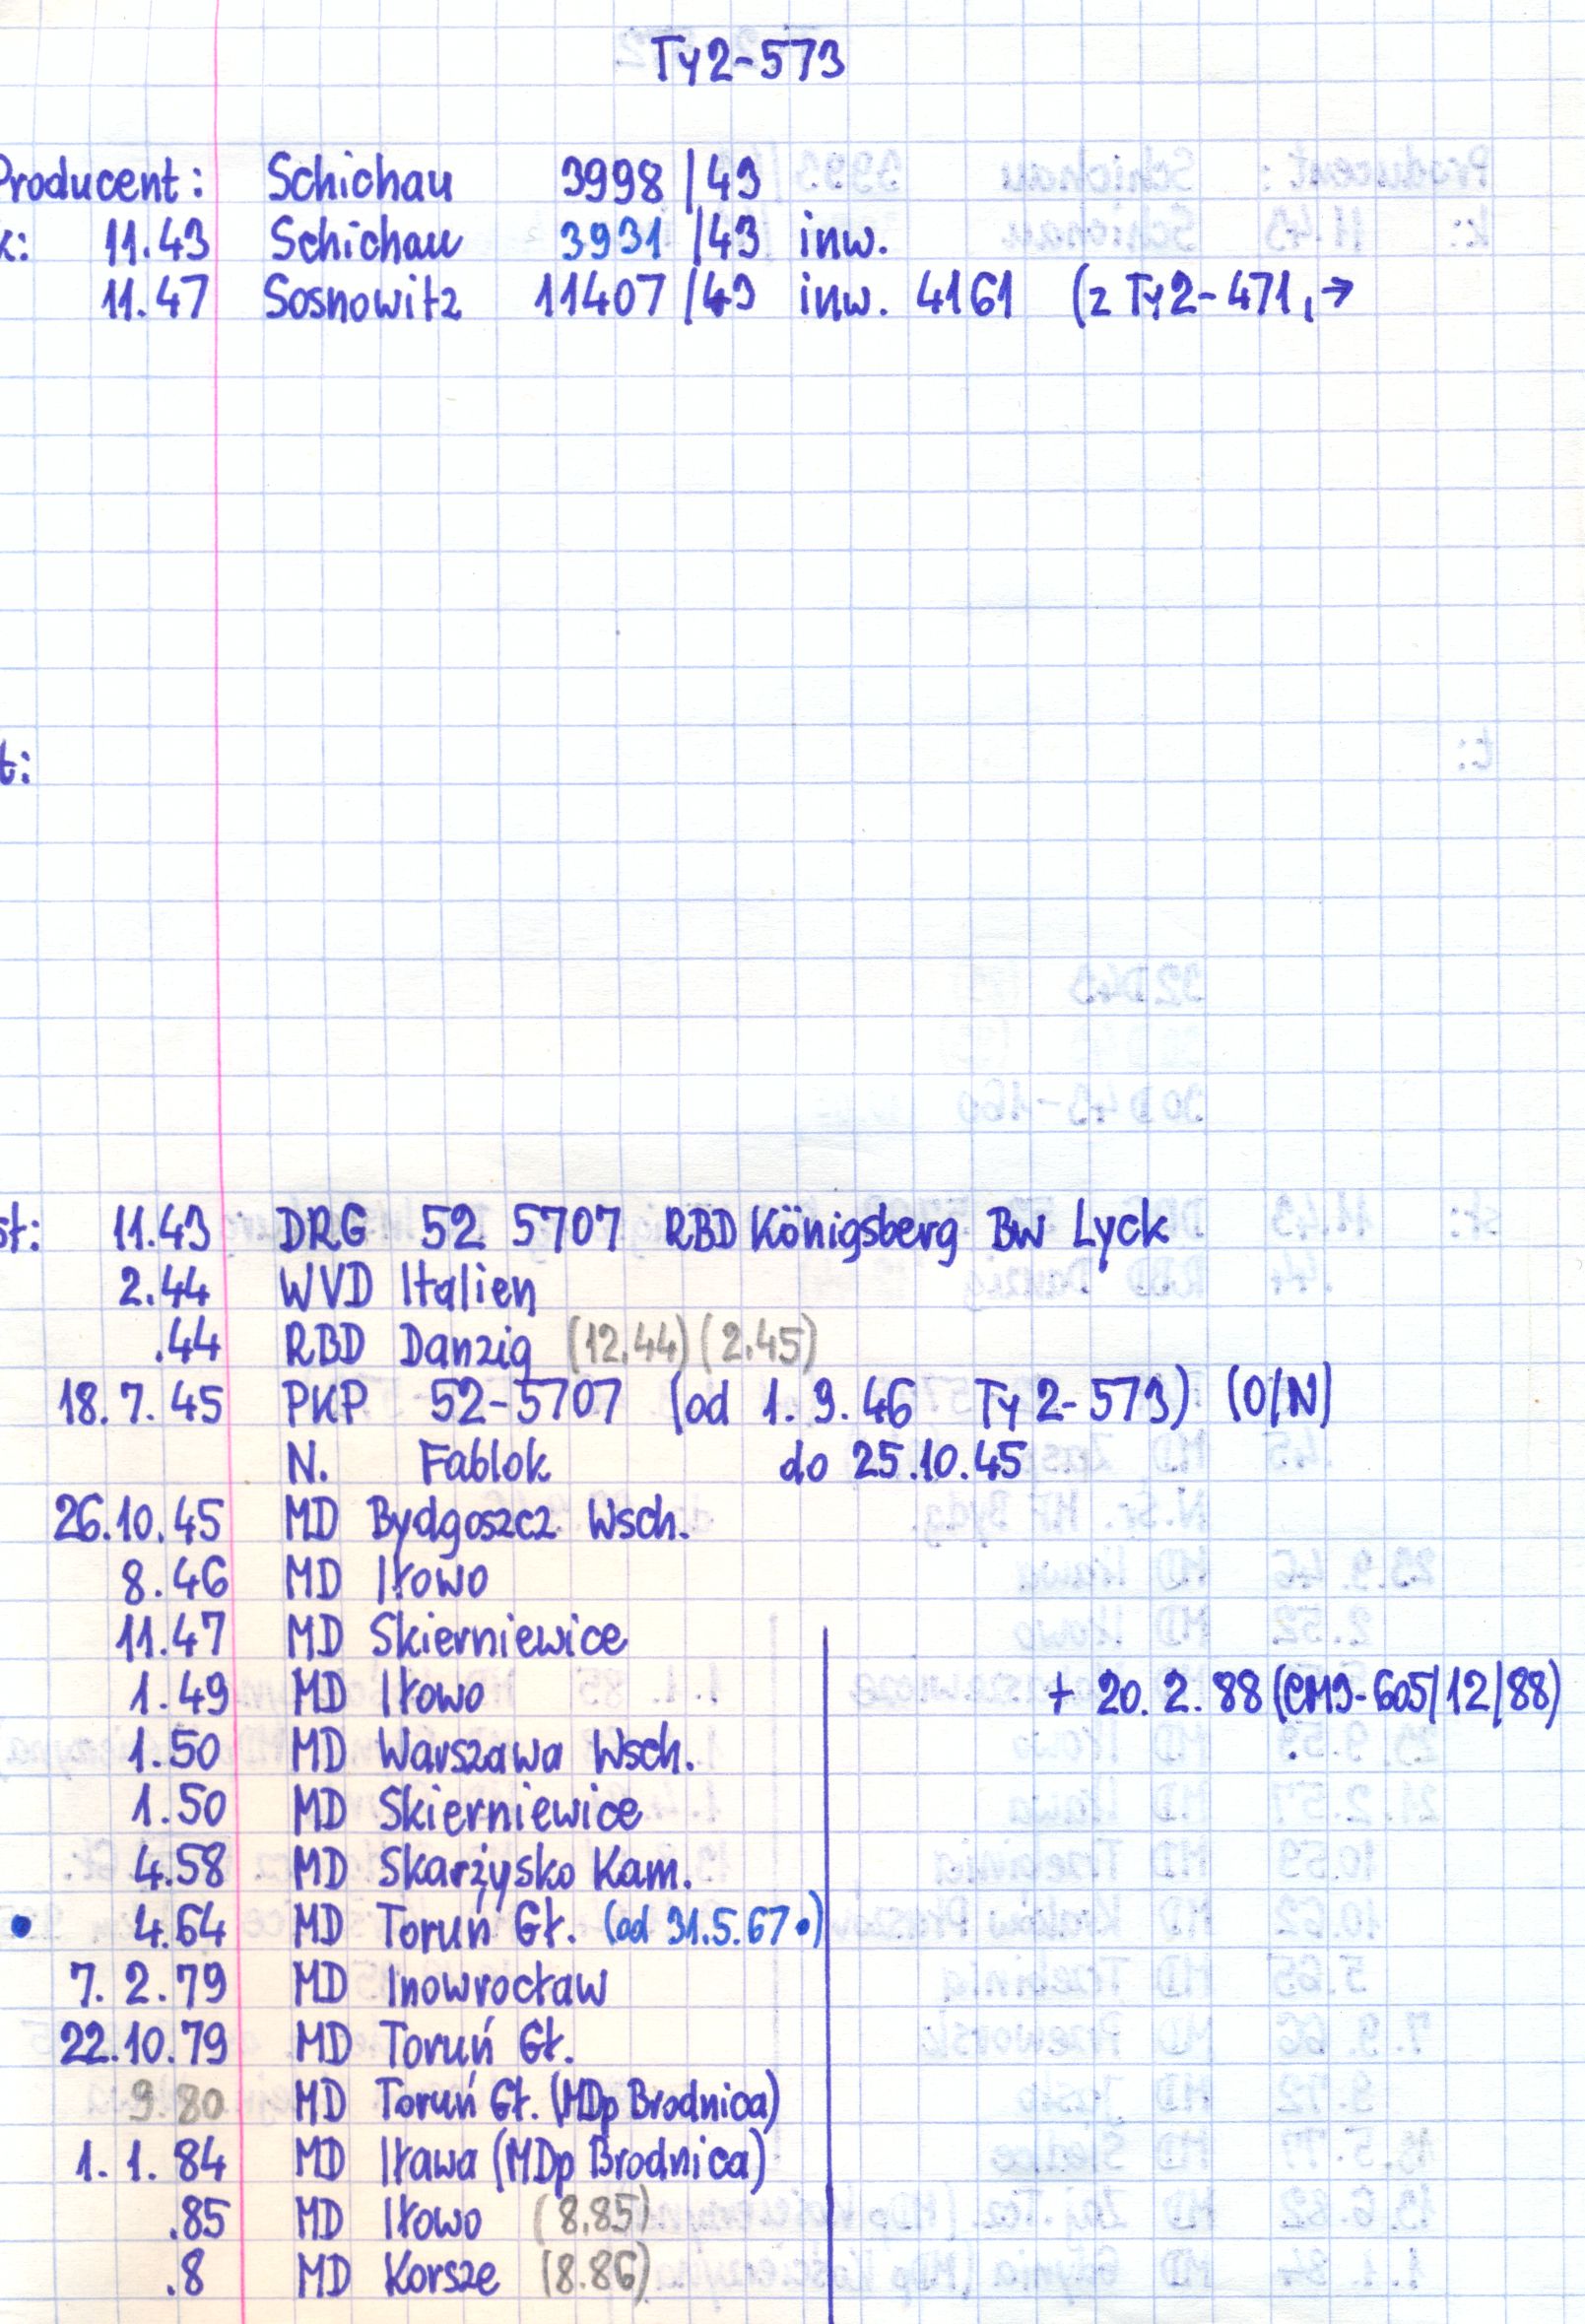 Ty2-573
Producent: Schichau 3998/43
k: 11.43 Schichau 3931/43 inw.
11.47 Sosnowitz 11407/43 inw. 4161 (z Ty2-471, →
t:
st: 11.43 DRG 52 5707 RBD Königsberg Bw Lyck
2.44 WVD Italien
.44 RBD Danzig (12.44) (2.45)
18.7.45 PKP 52-5707 (od 1.9.46 Ty2-573) (O/N)
N. Fablok do 25.10.45
26.10.45 MD Bydgoszcz Wsch.
8.46 MD Iłowo
11.47 MD Skierniewice
1.49 MD Iłowo
+ 20.2.88 (CM9-605/12/88)
1.50 MD Warszawa Wsch.
1.50 MD Skierniewice
4.58 MD Skarżysko Kam.
• 4.64 MD Toruń Gł. (od 31.5.67•)
7.2.79 MD Inowrocław
22.10.79 MD Toruń Gł.
9.80 MD Toruń Gł. (MDp Brodnica)
1.1.84 MD Iława (MDp Brodnica)
.85 MD Iłowo (8.85)
.8 MD Korsze (8.86)